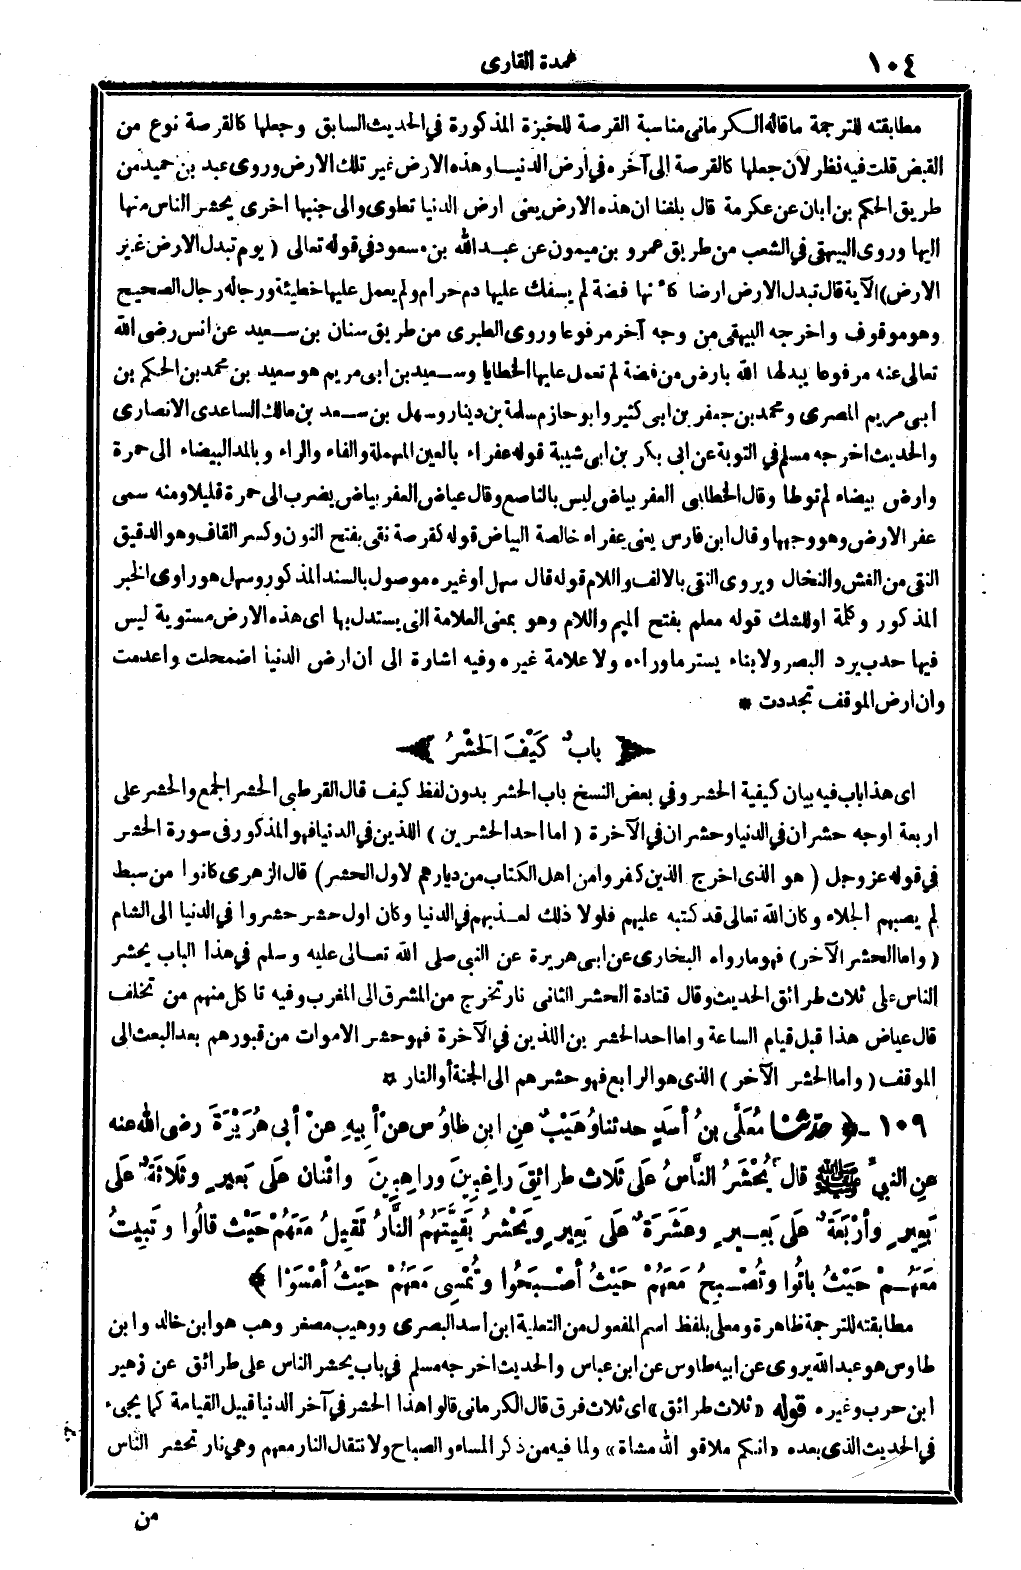 ١٠٤
عمدة القارى
مطابقته للترجمة ماقاله الكرمانى مناسبة القرصة للخبزة المذكورة في الحديث السابق وجعلها كالقرصة نوع من
القبض قلت فيه نظر لأن جعلها كالقرصة الى آخره في أرض الدنيا وهذه الارض غير تلك الارض وروى عبد بن حميد من
طريق الحكم بن ابان عن عكرمة قال بلغنا ان هذه الارض يعنى ارض الدنيا تطوى والى جنبها اخرى يحشر الناس منها
اليها وروى البيهقى في الشعب من طريق عمرو بن ميمون عن عبد الله بن مسعود في قوله تعالى ( يوم تبدل الارض غير
الارض) الآية قال تبدل الارض ارضا كأنها فضة لم يسفك عليها دم حرام ولم يعمل عليها خطيئة ورجاله رجال الصحيح
وهو موقوف واخرجه البيهقى من وجه آخر مرفوعا وروى الطبرى من طريق سنان بن سعيد عن انس رضى الله
تعالى عنه مرفوعا يبدلها الله بارض من فضة لم تعمل عليها الخطايا وسعيد بن ابى مريم هو سعيد بن محمد بن الحكم بن
أبى مريم المصرى ومحمد بن جعفر بن ابى كثير وابو حازم سلمة بن دينار وسهل بن سعد بن مالك الساعدى الانصارى
والحديث اخرجه مسلم في التوبة عن ابى بكر بن ابى شيبة قوله عفراء بالعين المهملة والفاء والراء وبالمد البيضاء الى حمرة
وارض بيضاء لم توطا وقال الخطابى العفر بياض ليس بالناصع وقال عياض العفر بياض يضرب الى حمرة قليلا ومنه سمى
عفر الارض وهو وجهها وقال ابن فارس يعنى عفراء خالصة البياض قوله كقرصة نقى بفتح النون وكسر القاف وهو الدقيق
النقى من الغش والنخال ويروى النقى بالالف واللام قوله قال سهل أو غيره موصول بالسند المذكور وسهل هو راوى الخبر
المذكور وكلمة او للشك قوله معلم بفتح الميم واللام وهو بمعنى العلامة التى يستدل بها اى هذه الارض مستوية ليس
فيها حدب يرد البصر ولا بناء يستر ما وراءه ولا علامة غيره وفيه اشارة الى ان ارض الدنيا اضمحلت واعدمت
وان ارض الموقف تجددت *
باب كَيْفَ الحَشْرُ
اى هذا باب فيه بيان كيفية الحشر وفي بعض النسخ باب الحشر بدون لفظ كيف قال القرطبى الحشر الجمع والحشر على
اربعة اوجه حشران في الدنيا وحشران في الآخرة ( اما احد الحشرين ) اللذين في الدنيا فهو المذكور فى سورة الحشر
في قوله عز وجل ( هو الذى اخرج الذين كفروا من اهل الكتاب من ديارهم لاول الحشر) قال الزهرى كانوا من سبط
لم يصبهم الجلاء وكان الله تعالى قد كتبه عليهم فلولا ذلك لعذبهم في الدنيا وكان اول حشر حشروا في الدنيا الى الشام
( واما الحشر الآخر) فهو ما رواه البخارى عن ابى هريرة عن النبى صلى الله تعالى عليه وسلم في هذا الباب يحشر
الناس على ثلاث طرائق الحديث وقال قتادة الحشر الثانى نار تخرج من المشرق الى المغرب وفيه تاكل منهم من تخلف
قال عياض هذا قبل قيام الساعة واما احد الحشرين اللذين في الآخرة فهو حشر الاموات من قبورهم بعد البعث الى
الموقف ( واما الحشر الآخر ) الذى هو الرابع فهو حشرهم الى الجنة أو النار *
١٠٩ - ﴿ حَدَّثَنَا مُعَلَّى بنُ أَسَدٍ حدثنا وُهَيْبٌ عنِ ابنِ طَاوُسٍ عنْ أبِيهِ عنْ أبى هُرَيْرَةَ رضى الله عنه
عنِ النبىِّ ﷺ قال يُحْشَرُ النَّاسُ عَلَى ثَلاثِ طرائِقَ رَاغِبِينَ ورَاهِبِينَ واثْنان عَلَى بَعِيرٍ وثَلاثَةٌ عَلَى
بَعِيرٍ وأرْبَعَةٌ عَلَى بَعِيرٍ وعَشَرَةٌ عَلَى بَعِيرٍ ويَحْشُرُ بَقِيَّتَهُمُ النَّارُ تَقِيلُ مَعَهُمْ حَيْثُ قالُوا وتَبِيتُ
مَعَهُمْ حَيْثُ باتُوا وتُصْبِحُ مَعَهُمْ حَيْثُ أصْبَحُوا وتُمْسِى مَعَهُمْ حَيْثُ أمْسَوْا ﴾
مطابقته للترجمة ظاهرة ومعلى بلفظ اسم المفعول من التعلية ابن أسد البصرى ووهيب مصغر وهب هو ابن خالد وابن
طاوس هو عبد الله يروى عن ابيه طاوس عن ابن عباس والحديث اخرجه مسلم في باب يحشر الناس على طرائق عن زهير
ابن حرب وغيره قوله «ثلاث طرائق» اى ثلاث فرق قال الكرمانى قالوا هذا الحشر في آخر الدنيا قبيل القيامة كما يجىء
في الحديث الذى بعده «انكم ملاقو الله مشاة» ولما فيه من ذكر المساء والصباح ولانتقال النار معهم وهى نار تحشر الناس
من